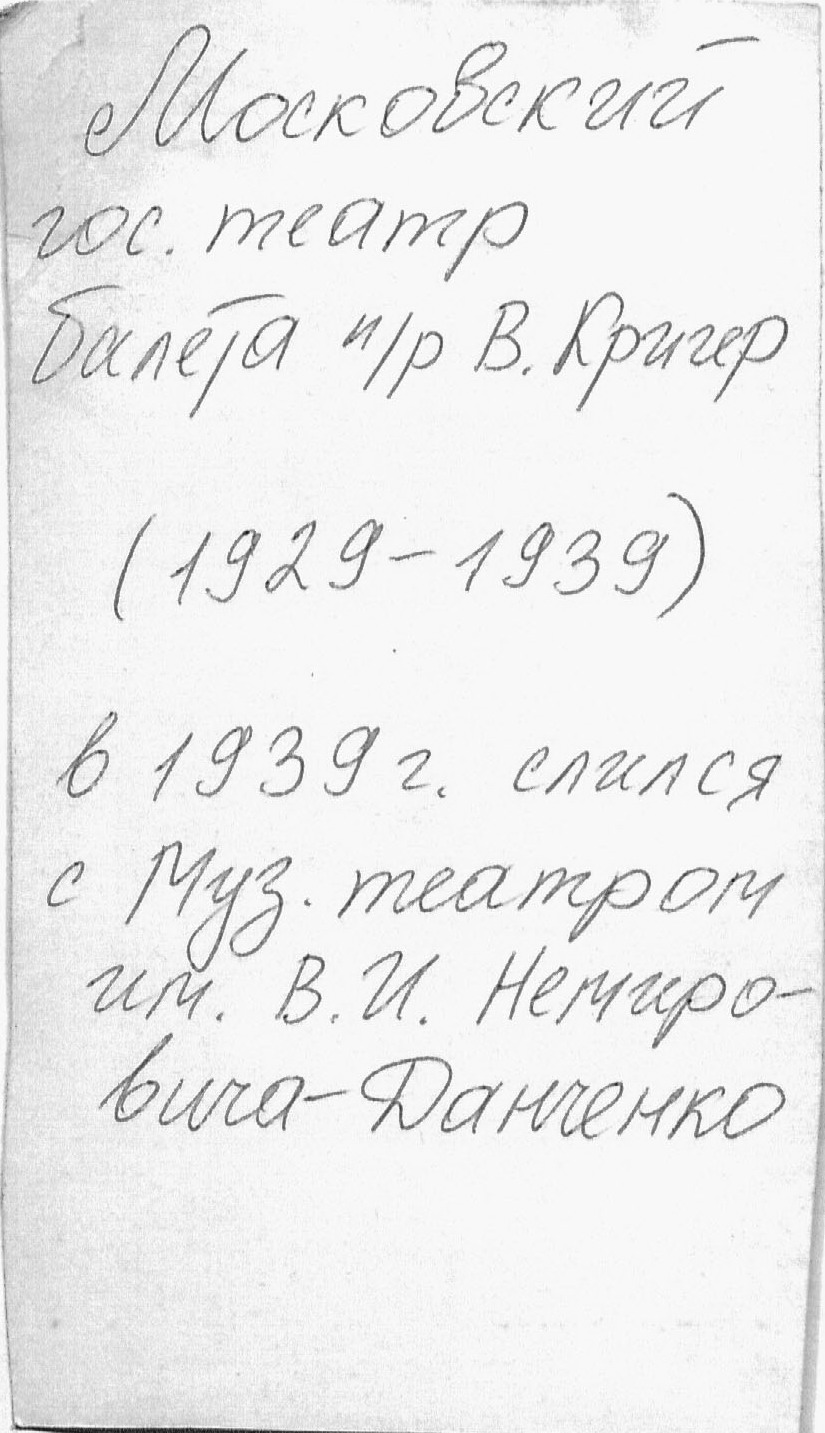 Московский
гос. театр
балета п/р В. Кригер
(1929-1939)
в 1939 г. слился
с Муз. театром
им. В.И. Немиро-
вича-Данченко